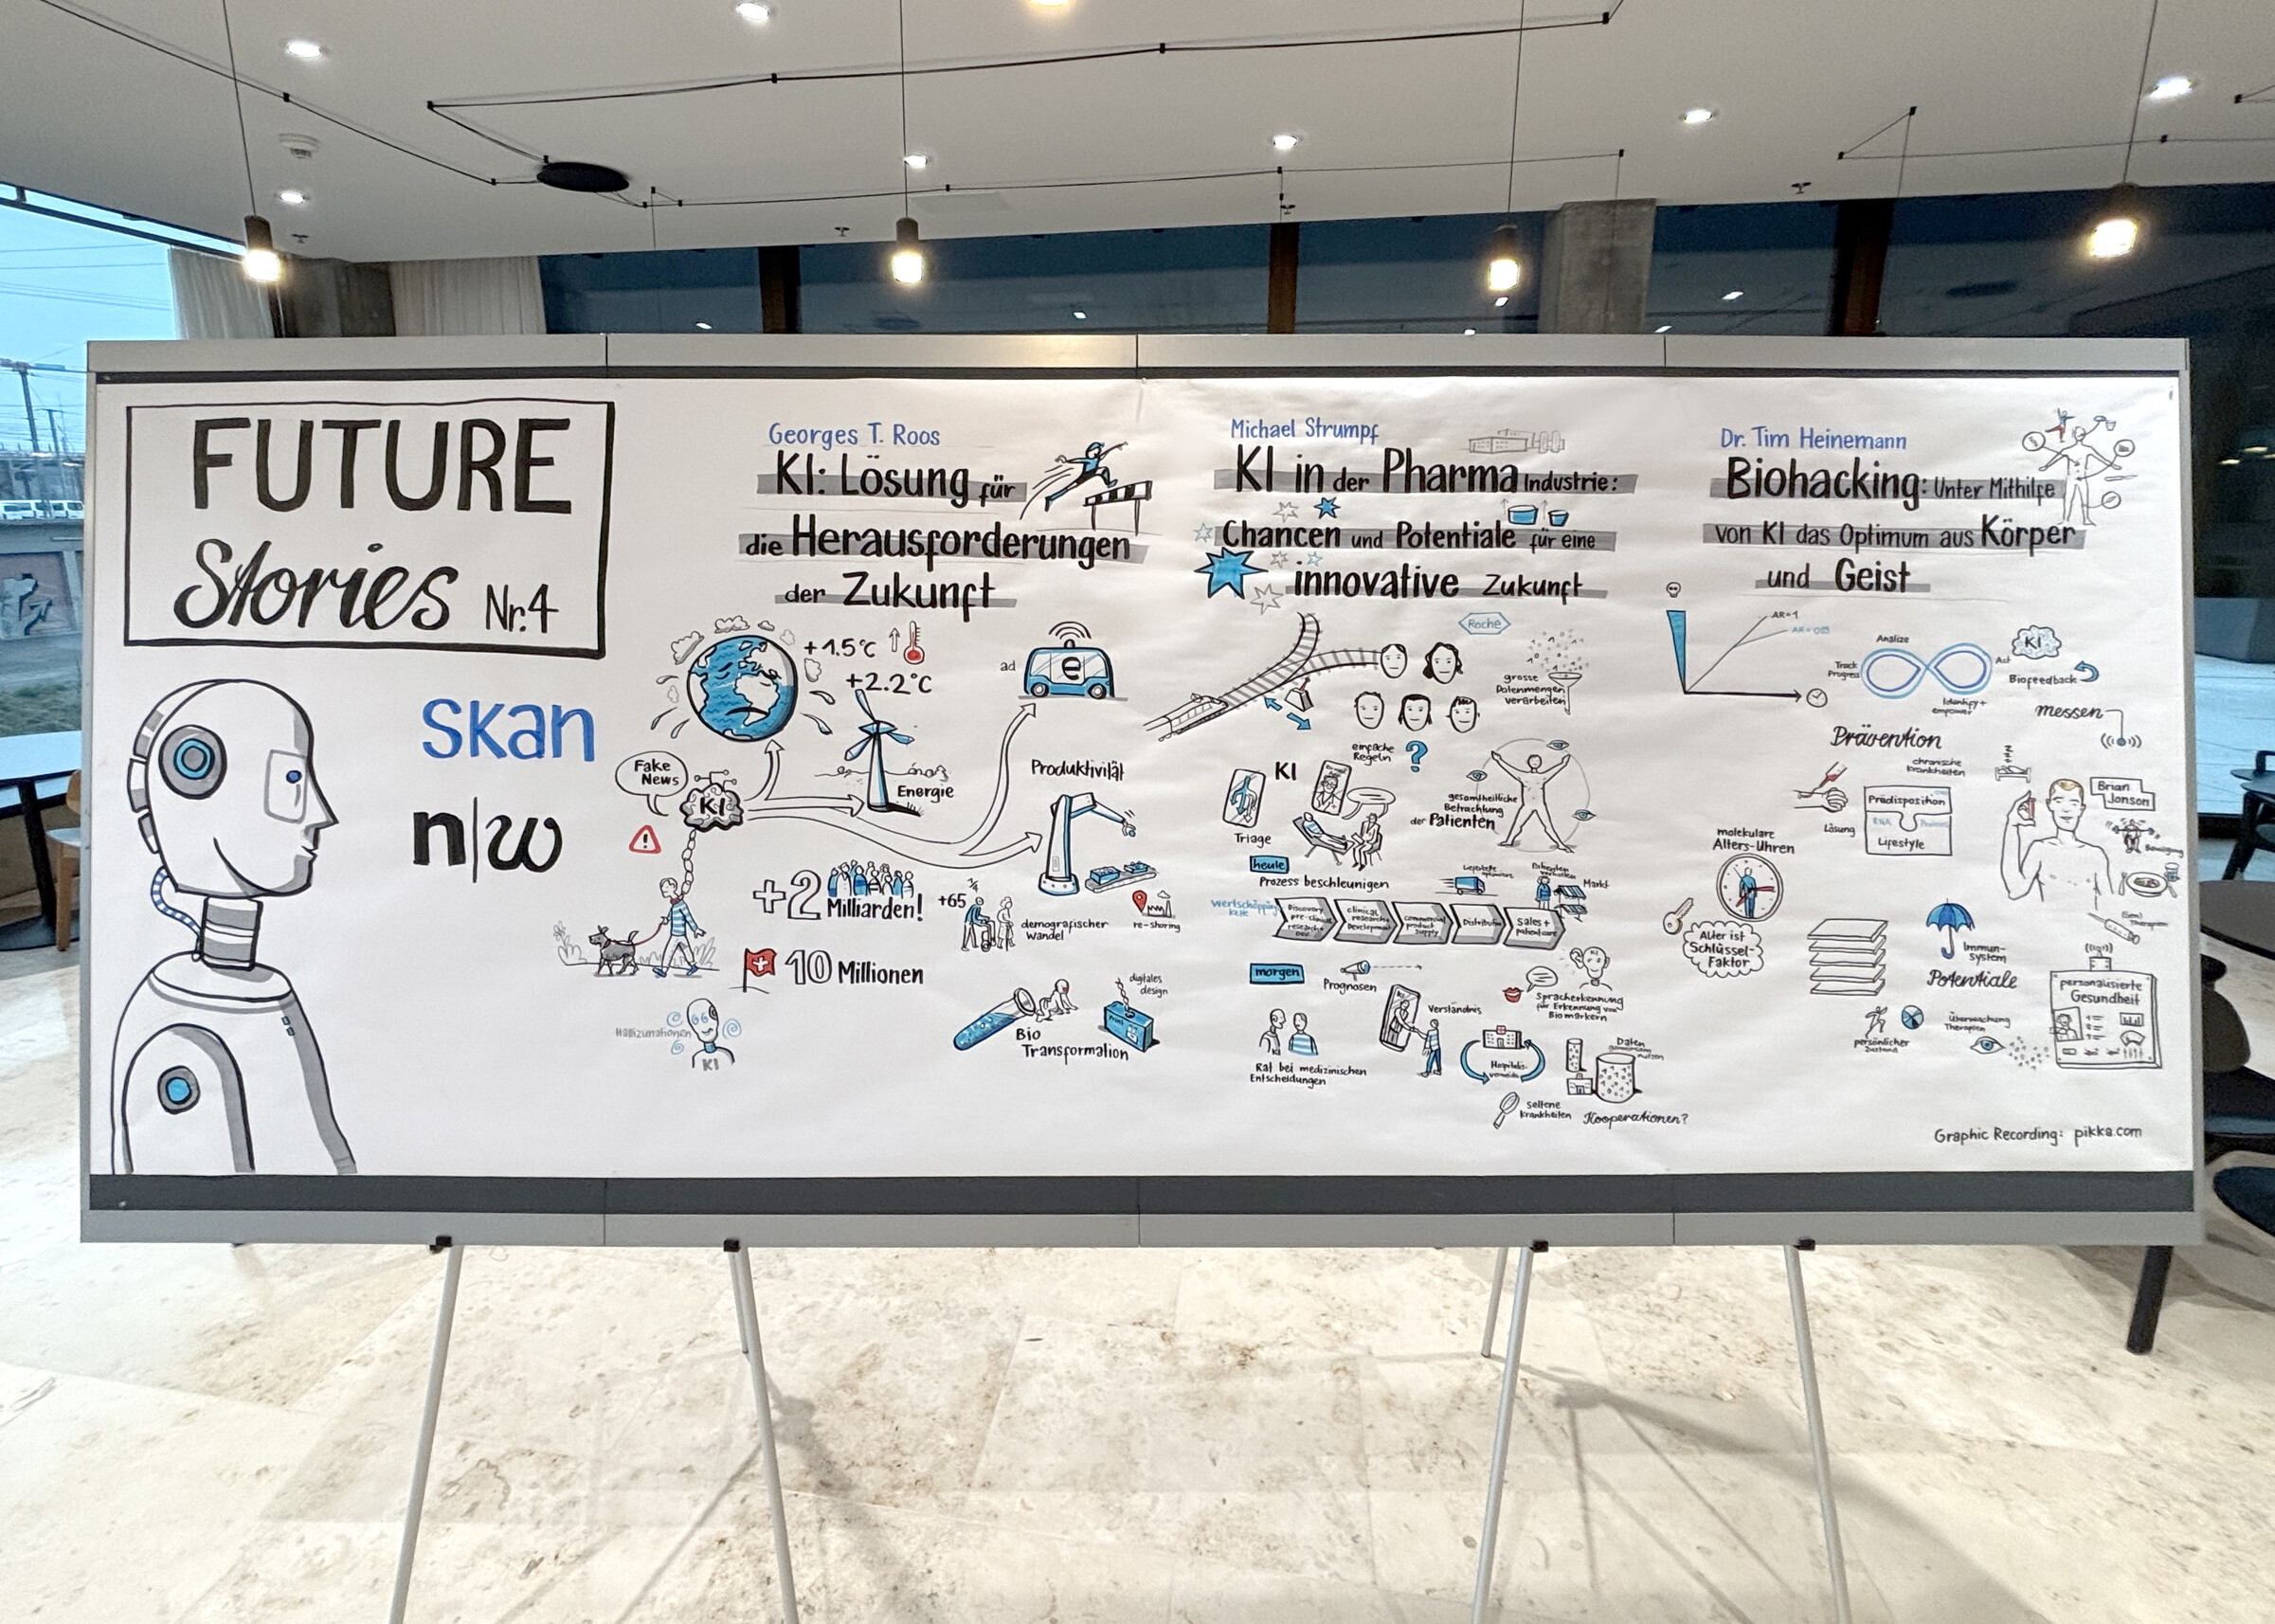 FUTURE
Stories Nr.4
skan
n|w
Georges T. Roos
KI: Lösung für
die Herausforderungen
der Zukunft
+1.5°C
+2.2°C
ad
e
Fake
News
KI
Energie
Produktivität
+2
Milliarden!
+65
1/4
demografischer
Wandel
re-shoring
10 Millionen
Hallizunationen
KI
Bio
Transformation
digitales
design
Michael Strumpf
KI in der Pharma Industrie:
Chancen und Potentiale für eine
innovative Zukunft
Roche
grosse
Datenmengen
verarbeiten
einfache
Regeln
?
KI
Triage
gesamtheitliche
Betrachtung
der Patienten
heute
Prozess beschleunigen
Markt
Wertschöpfungs
kette
Discovery
pre-clinical
research+
Dev.
clinical
research+
Development
commercial
product
supply
Distribution
Sales +
patient care
morgen
Prognosen
Verständnis
Spracherkennung
für Erkennung von
Biomarkern
Rat bei medizinischen
Entscheidungen
Daten
gemeinsam
nutzen
seltene
Krankheiten
Kooperationen?
Dr. Tim Heinemann
Biohacking: Unter Mithilfe
von KI das Optimum aus Körper
und Geist
AR=1
Analize
Track
Progress
Act
Identify+
empower
KI
Biofeedback
messen
Prävention
chronische
Krankheiten
Prädisposition
RNA
Proteine
Lifestyle
Lösung
Brian
Jonson
Bewegung
molekulare
Alters-Uhren
Alter ist
Schlüssel-
Faktor
Immun-
system
Potentiale
persönlicher
Zustand
Überwachung
Therapien
personalisierte
Gesundheit
Graphic Recording: pikka.com